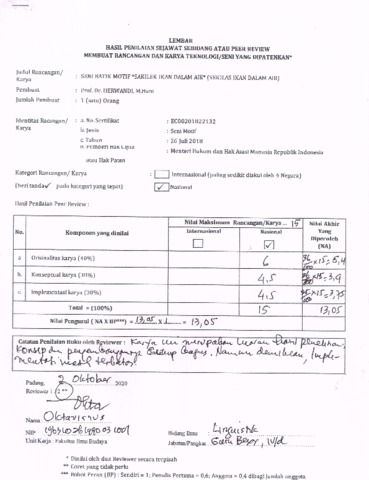 LEMBAR
HASIL PENILAIAN SEJAWAT SEBIDANG ATAU PEER REVIEW
MEMBUAT RANCANGAN DAN KARYA TEKNOLOGI/SENI YANG DIPATENKAN*
Judul Rancangan/ Karya : SENI BATIK MOTIF "SAKILEK IKAN DALAM AIR" (SEKILAS IKAN DALAM AIR)
Pembuat : Prof. Dr. HERWANDI, M.Hum
Jumlah Pembuat : 1 (satu) Orang
Identitas Racangan/ Karya : a. No Sertifikat : EC00201822132
b. Jenis : Seni Motif
c. Tahun : 26 Juli 2018
d. Pemberi Hak Cipta : Menteri Hukum dan Hak Asasi Manusia Republik Indonesia
atau Hak Paten
Kategori Rancangan/ Karya : Internasional (paling sedikit diakui oleh 4 Negara)
(beri tanda✓ pada kategori yang tepat) ✓ Nasional
Hasil Penilaian Peer Review :
No. Komponem yang dinilai Nilai Maksimum Rancangan/Karya ... 15 Nilai Akhir Yang Diperoleh (NA)
Internasional Nasional ✓
a Orisinalitas karya (40%) 6 x15= 5,4
b Konseptual karya (30%) 4,5 x15= 3,9
c Implementasi karya (30%) 4,5 x15= 3,75
Total = (100%) 15 13,05
Nilai Pengusul ( NA X BP***) = 13,05 x 1 = 13,05
Catatan Penilaian Etika oleh Reviewer : Karya ini merupakan luaran dari penelitian.
Konsep dan pengembangannya cukup bagus. Namun demikian, imple-
mentasi masih terbatas.
Padang, 2 Oktober 2020
Reviewer 1/2**
Nama : Oktavianus
NIP
Unit Kerja : Fakultas Ilmu Budaya
Bidang Ilmu : Linguistik
Jabatan/Pangkat : Guru Besar, IV/d
* Dinilai oleh dua Reviewer secara terpisah
** Coret yang tidak perlu
*** Bobot Peran (BP) : Sendiri = 1; Penulis Pertama = 0,6; Anggota = 0,4 dibagi jumlah anggota